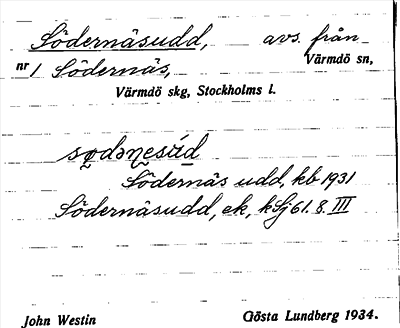 Södernäsudd, avs. från
nr 1 Södernäs, Värmdö sn,
Värmdö skg, Stockholms l.
Södernäs udd, kb 1931
Södernäsudd, ek, kSj 61. 8. III
John Westin Gösta Lundberg 1934.